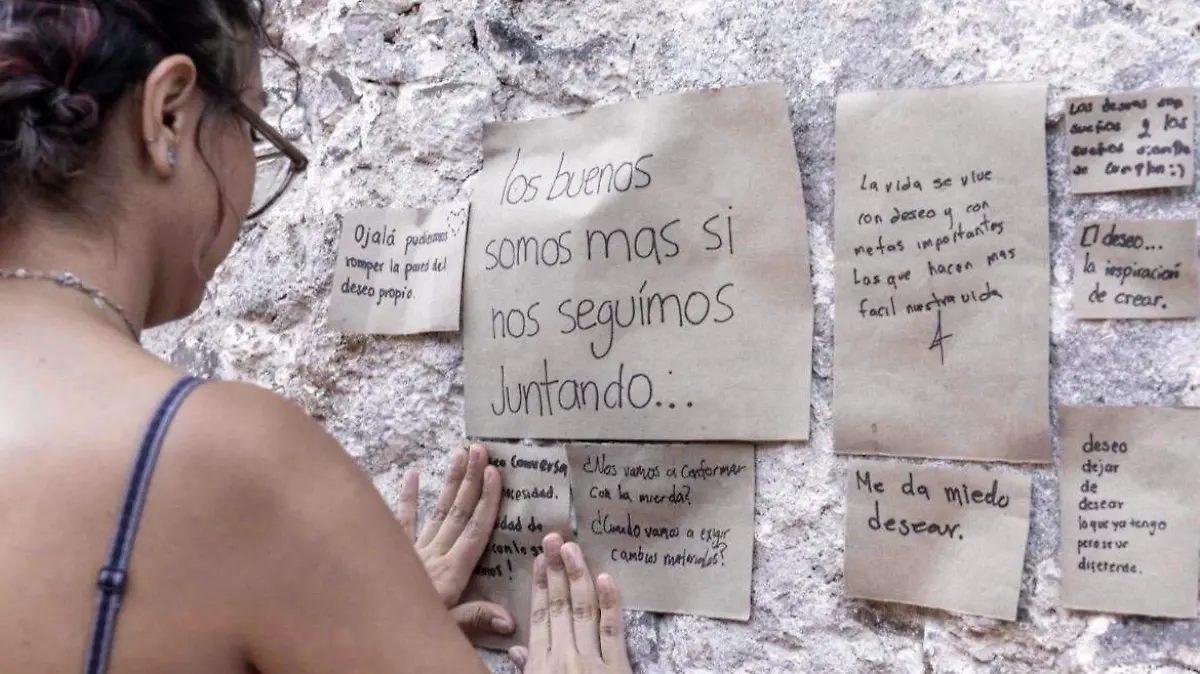 Ojalá pudiéramos
romper la pared del
deseo propio.
los buenos
somos mas si
nos seguímos
Juntando...
La vida se vive
con deseo y con
metas importantes
Las que hacen mas
facil nuestra vida
Los deseos son
sueños y los
sueños siempre
se cumplen :)
El deseo...
la inspiración
de crear.
Conversa
cesidad.
dad de
con lo
mos!
¿Nos vamos a conformar
con la mierda?
¿Cuando vamos a exigir
cambios materiales?
Me da miedo
desear.
deseo
dejar
de
desear
lo que ya tengo
pero se ve
diferente.